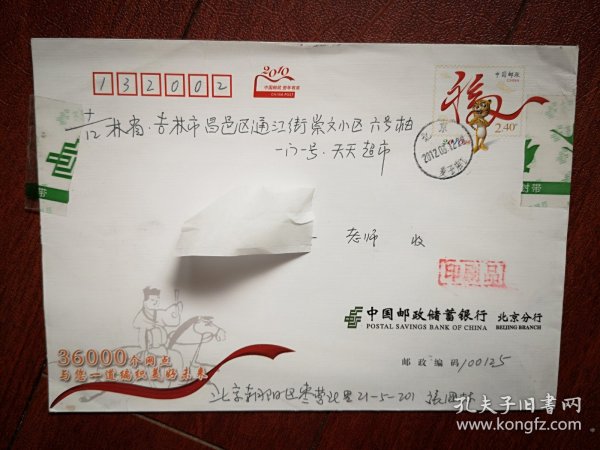 132002
2010
中国邮政 贺年有奖
CHINA POST
中国邮政
CHINA
福
2.40元
北京
2012.03.12
吉林省·吉林市昌邑区通江街崇文小区六号楼
一门一号·天天超市
封带
老师 收
印刷品
中国邮政储蓄银行 北京分行
POSTAL SAVINGS BANK OF CHINA BEIJING BRANCH
邮政编码 100125
36000个网点
与您一道编织美好未来
北京朝阳区枣营北里21-5-201 张
孔夫子旧书网